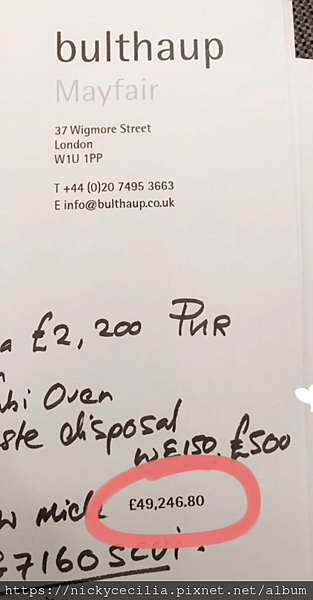 bulthaup
Mayfair
37 Wigmore Street
London
W1U 1PP
T +44 (0)20 7495 3663
E info@bulthaup.co.uk
£2,200
Oven
disposal
WE150. £500
£49,246.80
https://nickycecilia.pixnet.net/album